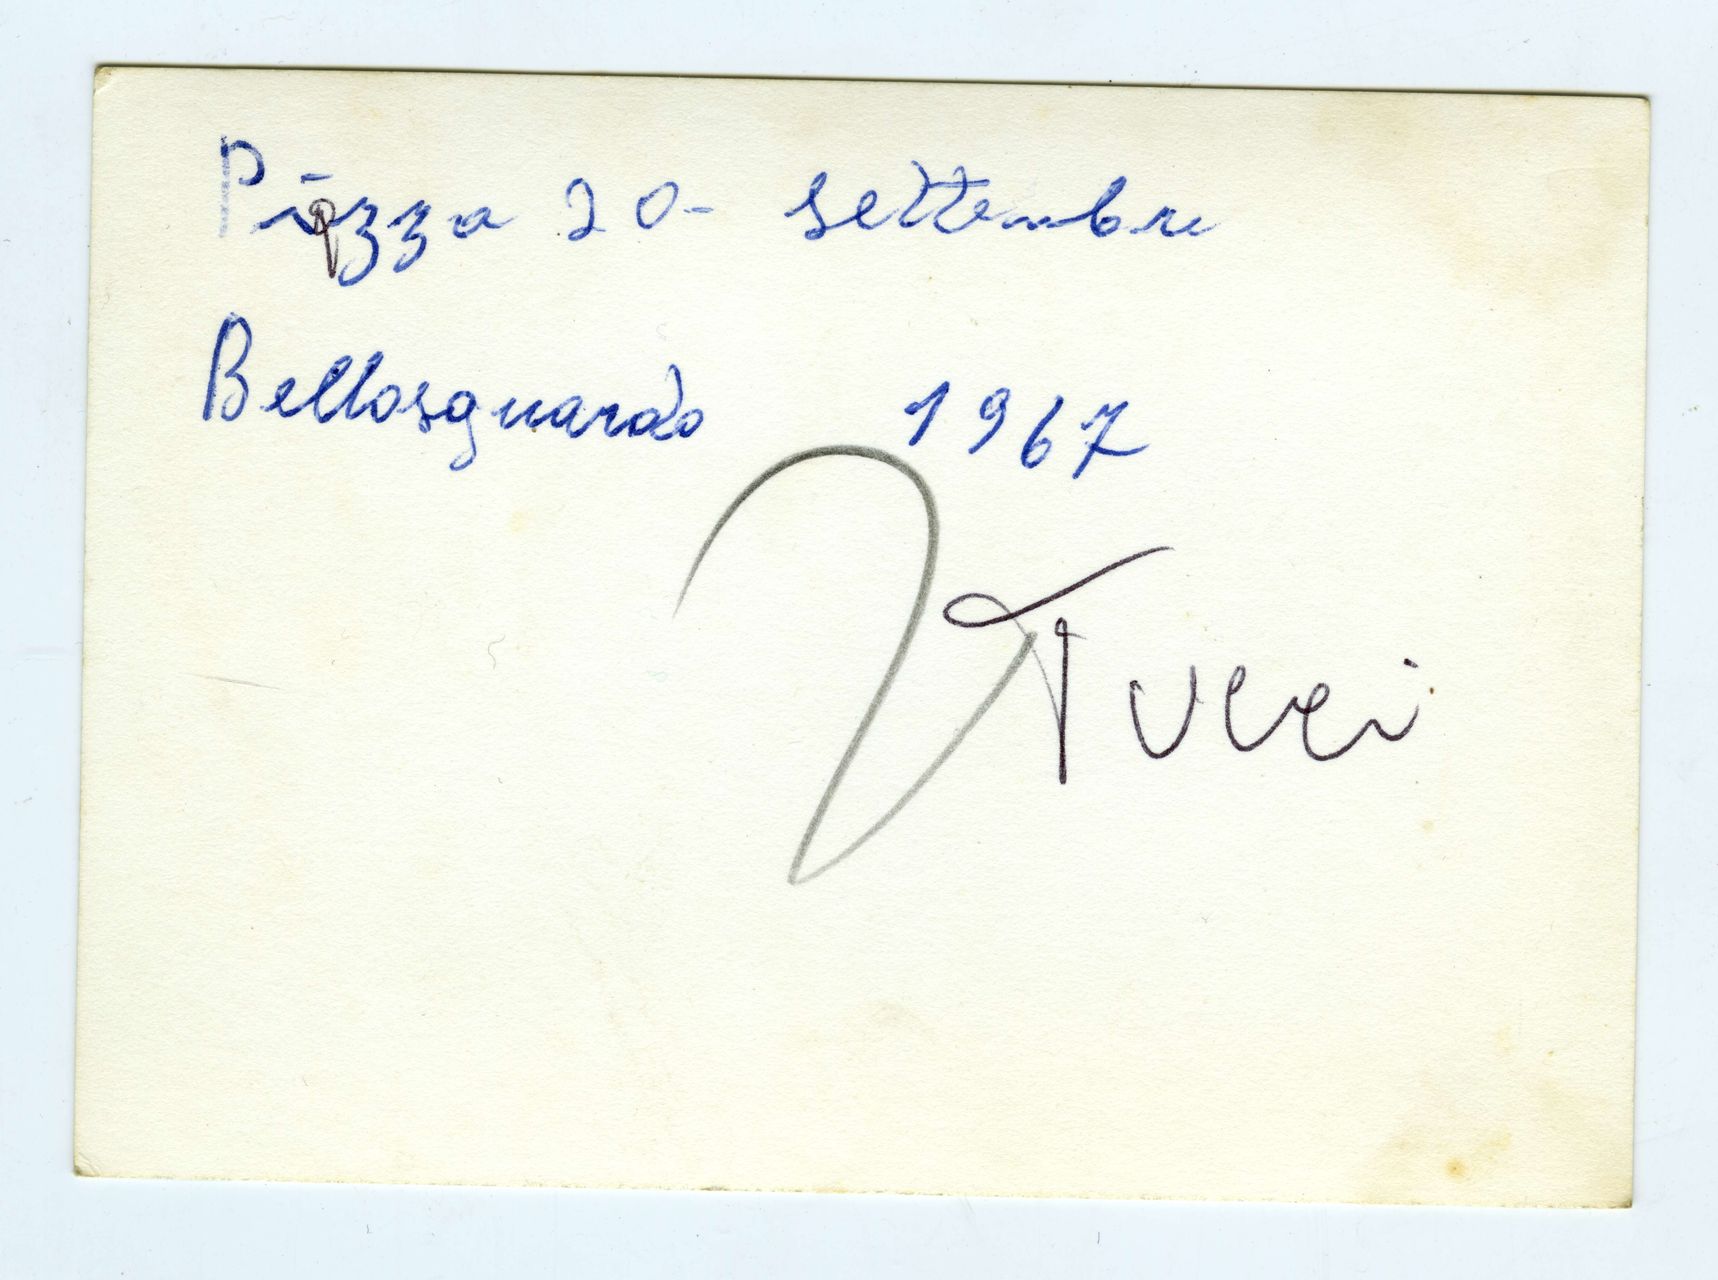 Piazza 20 - settembre
Bellosguardo 1967
Tucci